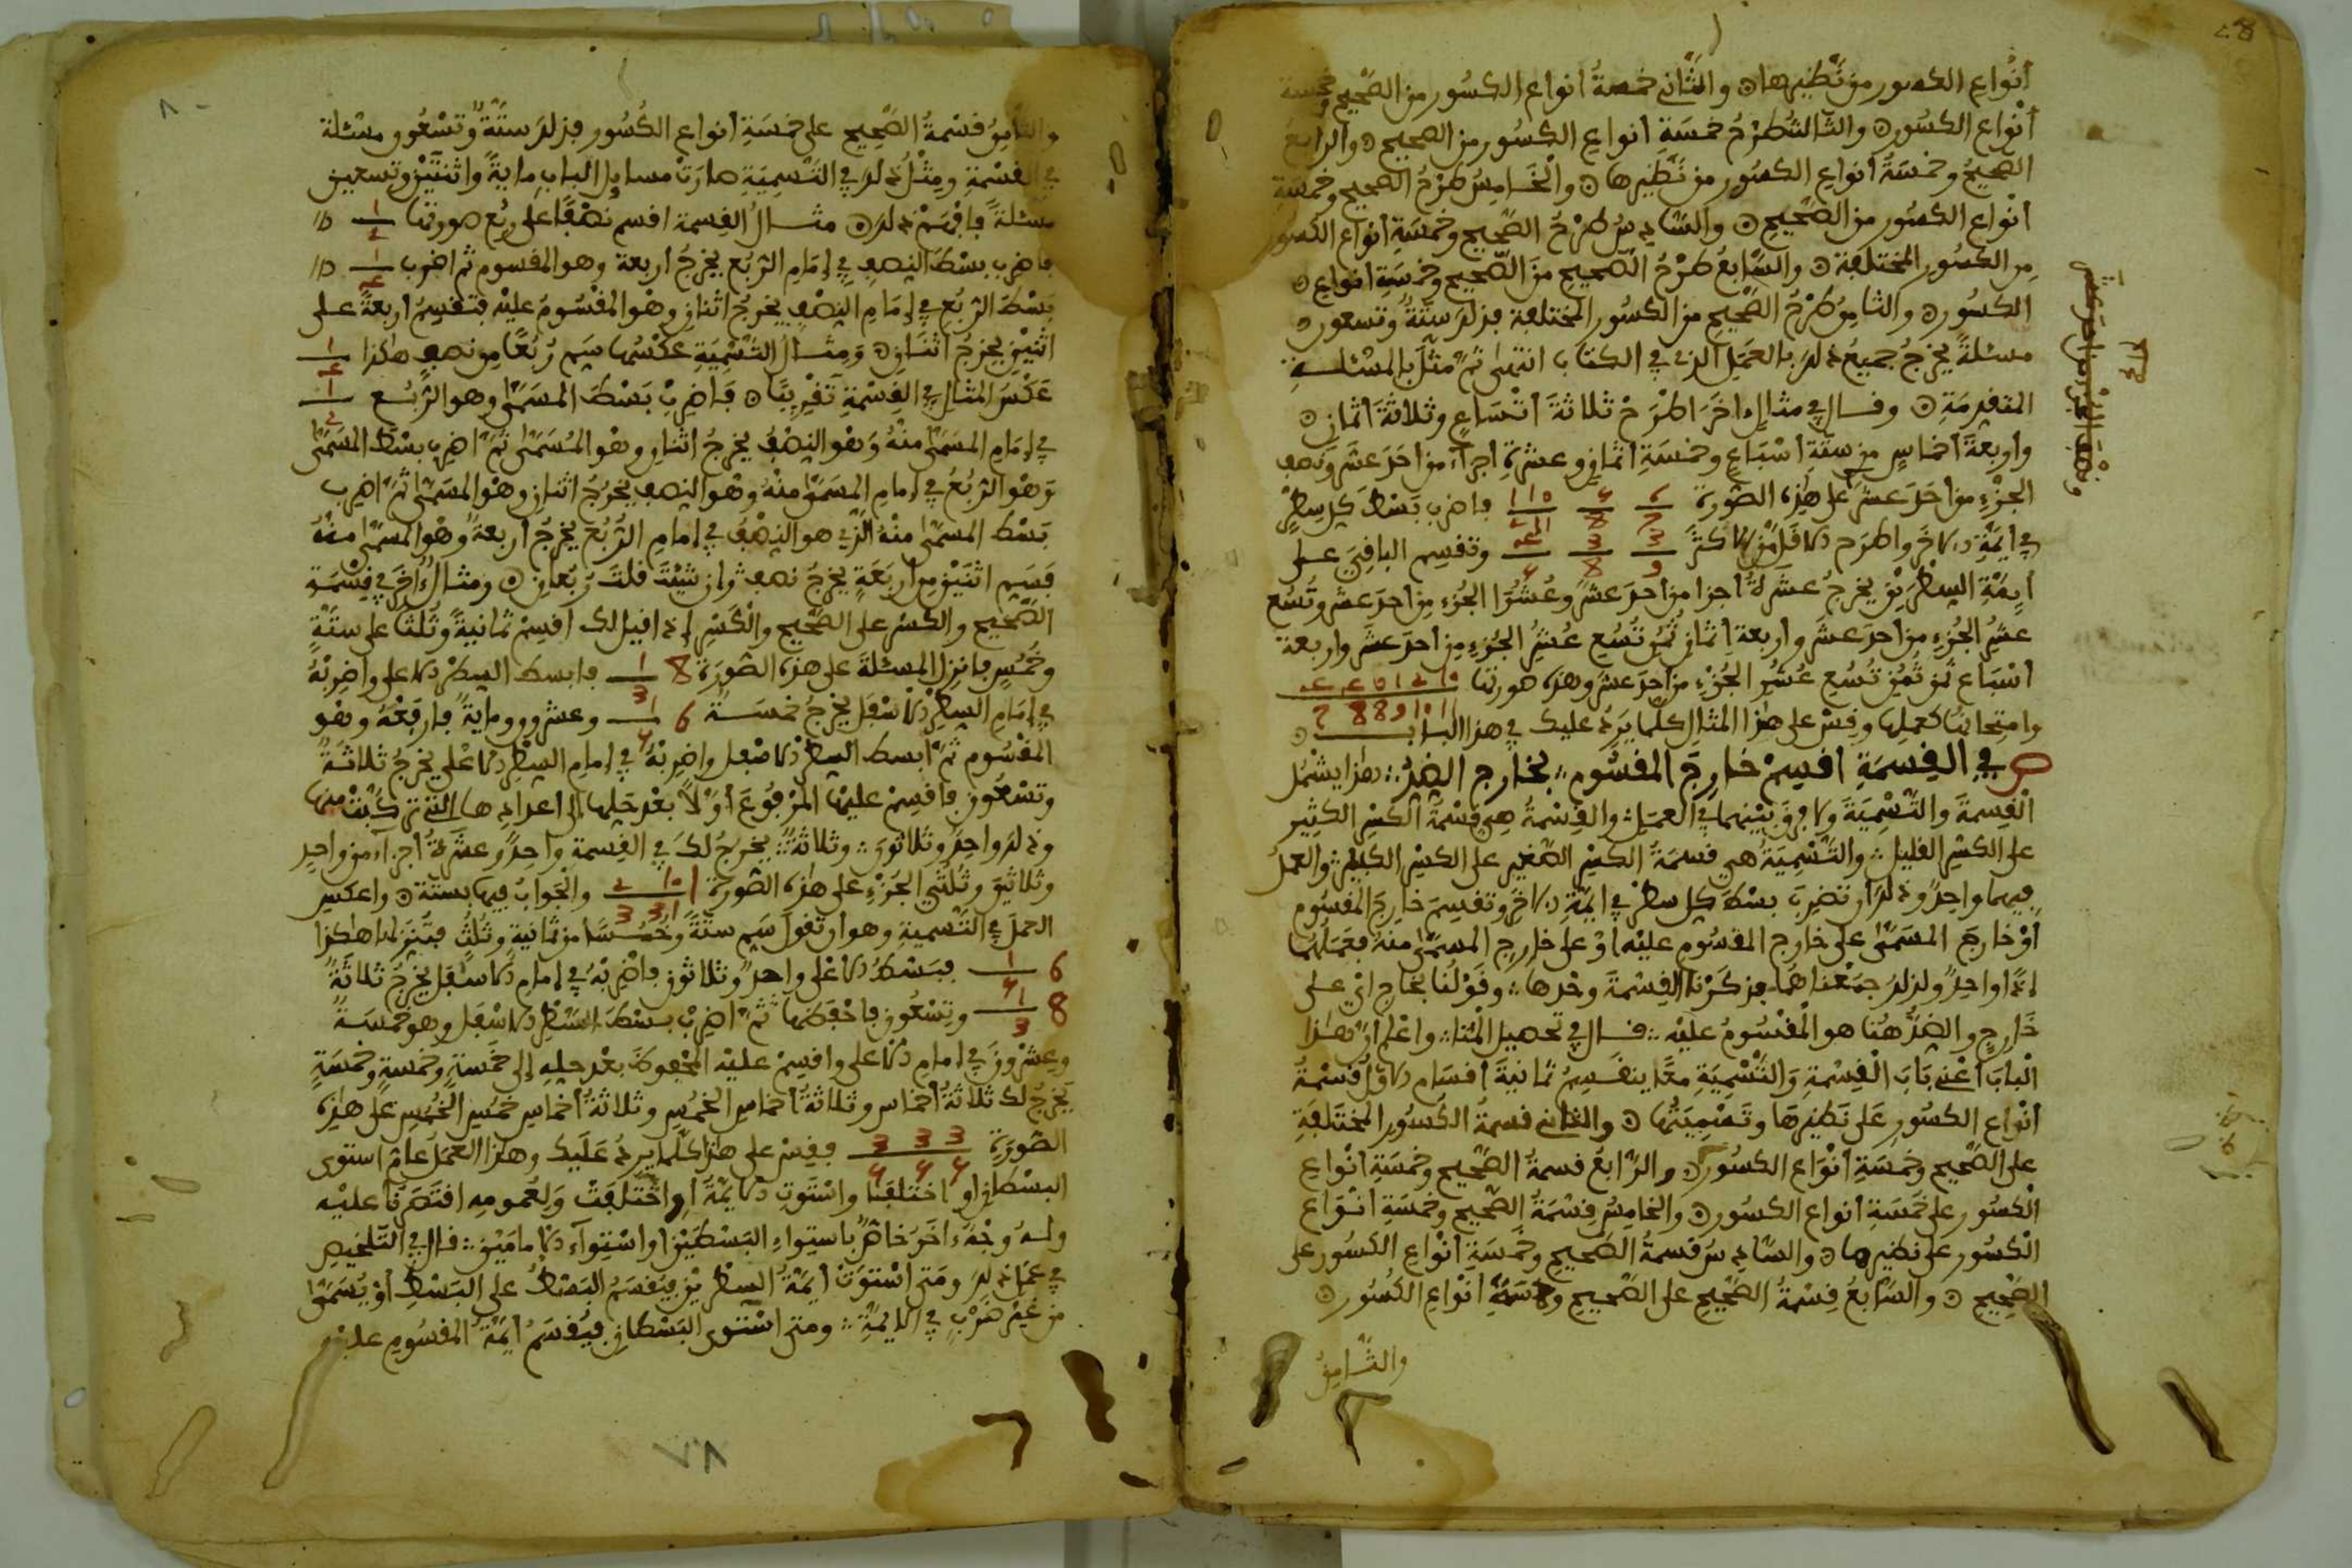 أنواع الكسور من نظيرها ۞ والثاني خمسة أنواع الكسور من الصحيح وخمسة
أنواع الكسور ۞ والثالث طرح خمسة أنواع الكسور من الصحيح ۞ والرابع
الصحيح وخمسة أنواع الكسور من نظيرها ۞ والخامس طرح الصحيح وخمسة
أنواع الكسور من الصحيح ۞ والسادس طرح الصحيح وخمسة أنواع الكسور
من الكسور المختلفة ۞ والسابع طرح الصحيح من الصحيح وخمسة أنواع ۞
الكسور ۞ والثامن طرح الصحيح من الكسور المختلفة فذلك ستة وتسعون ۞
مسئلة يخرج جميع ذلك بالعمل الذي في الكتاب انتهى ثم مثل بالمسئلة
المتقدمة ۞ وقال في مثال اخر اطرح ثلاثة اتساع وثلاثة أثمان ۞
واربعة اخماس من ستة أسباع وخمسة أثمان وعشرة أجزاء من أحد عشر ونصف
الجزء من أحد عشر على هذه الصورة فاضرب بسط كل سطر
في أيمة الاخر واطرح الاقل من الاكثر وتقسم الباقي على
أيمة السطرين يخرج عشرة أجزا من أحد عشر وعشر الجزء من أحد عشر وتسع
عشر الجزء من أحد عشر وأربعة أثمان تسع عشر الجزء من أحد عشر واربعة
أسباع ثمن تسع عشر الجزء من أحد عشر وهذه صورتها
وامتحانها كعملها وقس على هذا المثال كلما يرد عليك في هذا الباب ۞
ص في القسمة اقسم خارج المقسوم بخارج الضد هذا يشمل
القسمة والتسمية ولا فرق بينهما في العمل والقسمة هي قسمة الكسر الكثير
على الكسر القليل والتسمية هي قسمة الكسر الصغير على الكسر الكبير والعمل
فيهما واحد وذلك أن تضرب بسط كل سطر في أيمة الاخر وتقسم خارج المقسوم
أو خارج المسمى على خارج المقسوم عليه أو على خارج المسمى منه فعملها
إذا واحد ولذلك جمعناهما فذكرنا القسمة وحدها وقولنا بخارج اي على
خارج والضد هنا هو المقسوم عليه قال في تحصيل المنا واعلم أن هذا
الباب أعني باب القسمة والتسمية معا ينقسم ثمانية أقسام الاول قسمة
أنواع الكسور على نظيرها وتسميتها ۞ والثاني قسمة الكسور المختلفة
على الصحيح وخمسة أنواع الكسور ۞ والرابع قسمة الصحيح وخمسة أنواع
الكسور على خمسة أنواع الكسور ۞ والخامس قسمة الصحيح وخمسة أنواع
الكسور على نظيرها ۞ والسادس قسمة الصحيح وخمسة أنواع الكسور على
الصحيح ۞ والسابع قسمة الصحيح على الصحيح وخمسة أنواع الكسور ۞
والثامن
والثامن قسمة الصحيح على خمسة أنواع الكسور فذلك ستة وتسعون مسئلة
في القسمة ومثل ذلك في التسمية صارت مسايل الباب ماية واثنتين وتسعين
مسئلة فافهم ذلك ۞ مثال القسمة اقسم نصفا على ربع صورتها
فاضرب بسط النصف في إمام الربع يخرج أربعة وهو المقسوم ثم اضرب
بسط الربع في إمام النصف يخرج اثنان وهو المقسوم عليه فتقسم أربعة على
اثنين يخرج اثنان ۞ ومثال التسمية عكسها سم ربعا من نصف هاكذا
عكس المثال في القسمة تقريبا ۞ فاضرب بسط المسمى وهو الربع
في إمام المسمى منه وهو النصف يخرج اثنان وهو المسمى ثم اضرب بسط المسمى
وهو الربع في إمام المسمى منه وهو النصف يخرج اثنان وهو المسمى ثم اضرب
بسط المسمى منه الذي هو النصف في إمام الربع يخرج أربعة وهو المسمى منه
فسم اثنين من أربعة يخرج نصف وإن شيت قلت ربعان ۞ ومثال اخر في قسمة
الصحيح والكسر على الصحيح والكسر إذا قيل لك اقسم ثمانية وثلثا على ستة
وخمس فانزل المسئلة على هذه الصورة فابسط السطر الاعلى واضربه
في إمام السطر الاسفل يخرج خمسة وعشرون وماية فارفعه وهو
المقسوم ثم ابسط السطر الاسفل واضربه في إمام السطر الاعلى يخرج ثلاثة
وتسعون فاقسم عليها المرفوع أولا بعد حلها إلى اعدادها التي تركبت منها
وذلك واحد وثلاثون وثلاثة يخرج لك في القسمة واحد وعشرة أجزاء من واحد
وثلاثين وثلثي الجزء على هذه الصورة والجواب فيها بستة ۞ واعكس
العمل في التسمية وهو أن تقول سم ستة وخمسا من ثمانية وثلث فتنزلها هكذا
فبسط الاعلى واحد وثلاثون فاضربه في إمام الاسفل يخرج ثلاثة
وتسعون فاحفظها ثم اضرب بسط السطر الاسفل وهو خمسة
وعشرون في إمام الاعلى واقسم عليه المحفوظ بعد حله إلى خمسة وخمسة وخمسة
يخرج لك ثلاثة أخماس وثلاثة أخماس الخمس وثلاثة أخماس خمس الخمس على هذه
الصورة فقس على هذا كلما يرد عليك وهذا العمل عام استوى
البسطان أو اختلفا واستوت الايمة أو اختلفت ولعمومه اقتصرنا عليه
وله وجه اخر خاص باستواء البسطين أو استواء الامامين قال في التلخيص
في عمل ذلك ومتى استوت أيمة السطرين فيقسم البسط على البسط أو يسمى
من غير ضرب في الايمة ومتى استوى البسطان فيقسم أيمة المقسوم عليه
٧٨